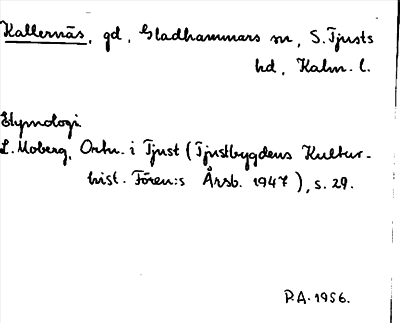 Kallernäs, gd, Gladhammars sn, S. Tjusts
hd, Kalm. l.
Etymologi
L. Moberg, Ortn. i Tjust (Tjustbygdens Kultur-
hist. Fören:s Årsb. 1947), s. 29.
P.A. 1956.